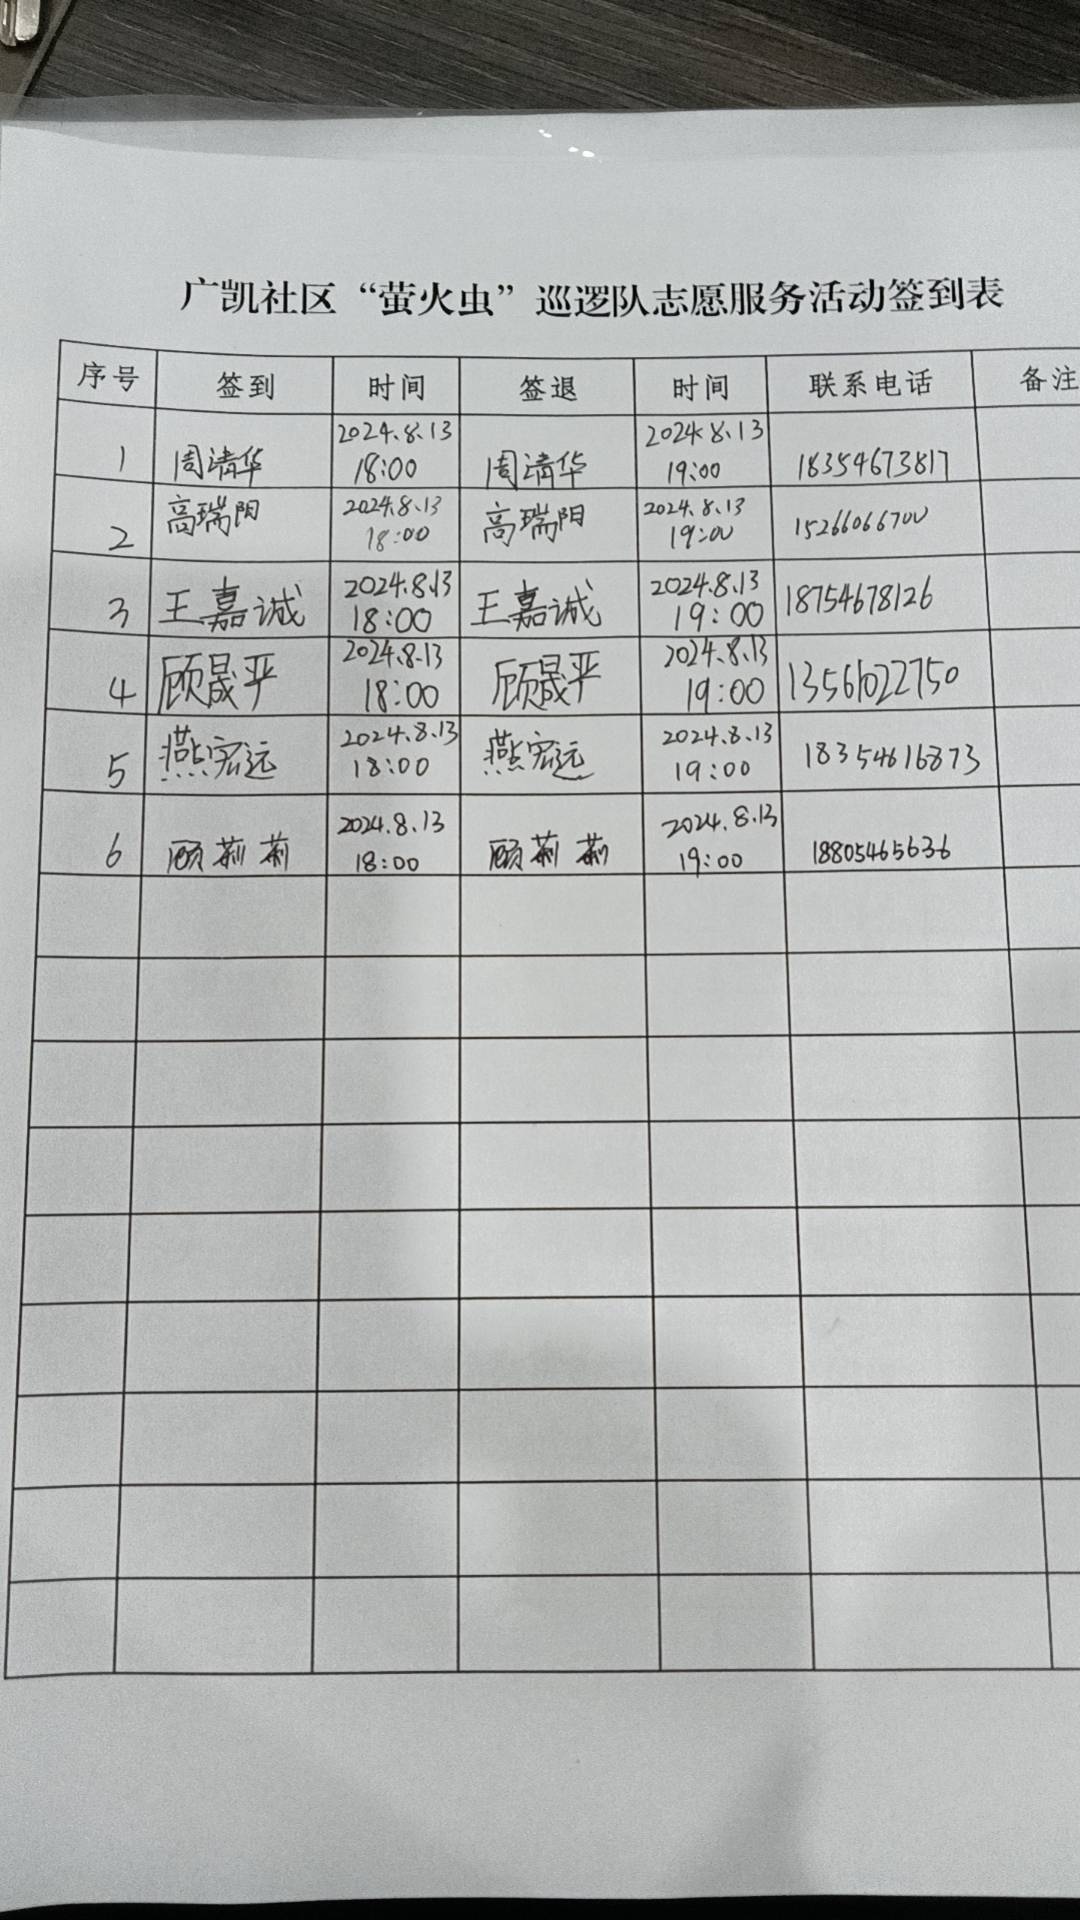 广凯社区“萤火虫”巡逻队志愿服务活动签到表
序号 签到 时间 签退 时间 联系电话 备注
1 周清华 2024.8.13 18:00 周清华 2024.8.13 19:00 18354673817
2 高瑞阳 2024.8.13 18:00 高瑞阳 2024.8.13 19:00 15266066700
3 王嘉诚 2024.8.13 18:00 王嘉诚 2024.8.13 19:00 18754678126
4 顾晟平 2024.8.13 18:00 顾晟平 2024.8.13 19:00 13561022750
5 燕宏远 2024.8.13 18:00 燕宏远 2024.8.13 19:00 18354616873
6 顾莉莉 2024.8.13 18:00 顾莉莉 2024.8.13 19:00 18805465636